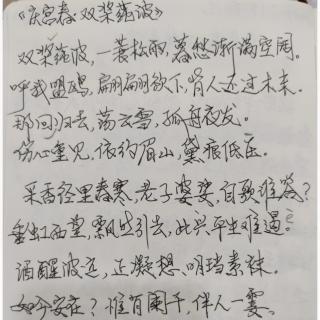 《庆宫春·双桨莼波》
双桨莼波，一蓑松雨，暮愁渐满空阔。
呼我盟鸥，翩翩欲下，背人还过木末。
那回归去，荡云雪，孤舟夜发。
伤心重见，依约眉山，黛痕低压。
采香径里春寒，老子婆娑，自歌谁答？
垂虹西望，飘然引去，此兴平生难遏。
酒醒波远，正凝想、明珰素袜。
如今安在？惟有阑干，伴人一霎。